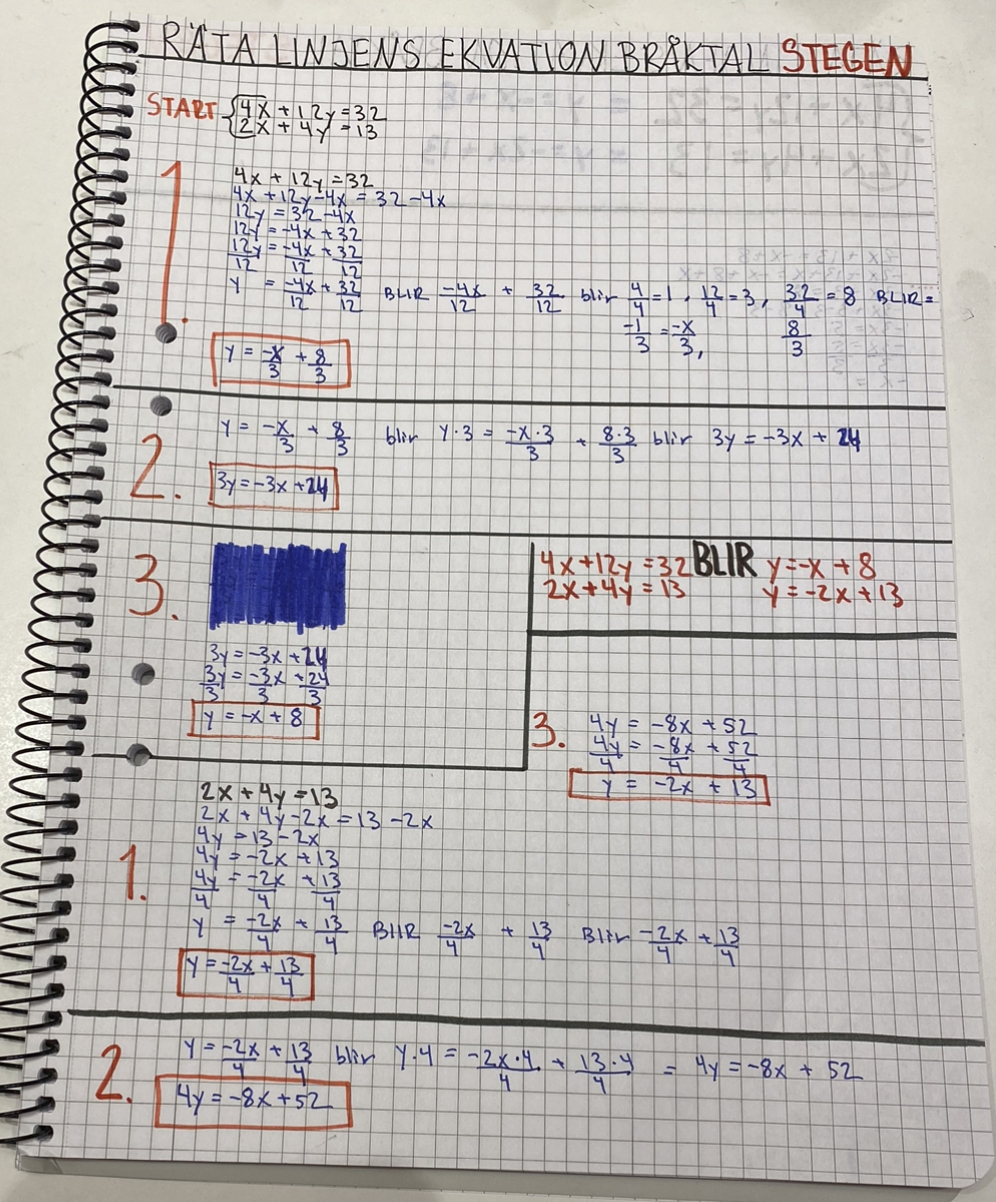 RÄTA LINJENS EKVATION BRÅKTAL STEGEN
START { 4x + 12y = 32
2x + 4y = 13
1.
4x + 12y = 32
4x + 12y - 4x = 32 - 4x
12y = 32 - 4x
12y = -4x + 32
12y/12 = -4x/12 + 32/12
y = -4x/12 + 32/12 BLIR -4x/12 + 32/12 blir 4/4 = 1, 12/4 = 3, 32/4 = 8 BLIR =
-1/3 = -x/3, 8/3
y = -x/3 + 8/3
2.
y = -x/3 + 8/3 blir y·3 = -x·3/3 + 8·3/3 blir 3y = -3x + 24
3y = -3x + 24
3.
3y = -3x + 24
3y/3 = -3x/3 + 24/3
y = -x + 8
4x + 12y = 32 BLIR y = -x + 8
2x + 4y = 13 y = -2x + 13
3.
4y = -8x + 52
4y/4 = -8x/4 + 52/4
y = -2x + 13
1.
2x + 4y = 13
2x + 4y - 2x = 13 - 2x
4y = 13 - 2x
4y = -2x + 13
4y/4 = -2x/4 + 13/4
y = -2x/4 + 13/4 BLIR -2x/4 + 13/4 Blir -2x/4 + 13/4
y = -2x/4 + 13/4
2.
y = -2x/4 + 13/4 blir y·4 = -2x·4/4 + 13·4/4 = 4y = -8x + 52
4y = -8x + 52